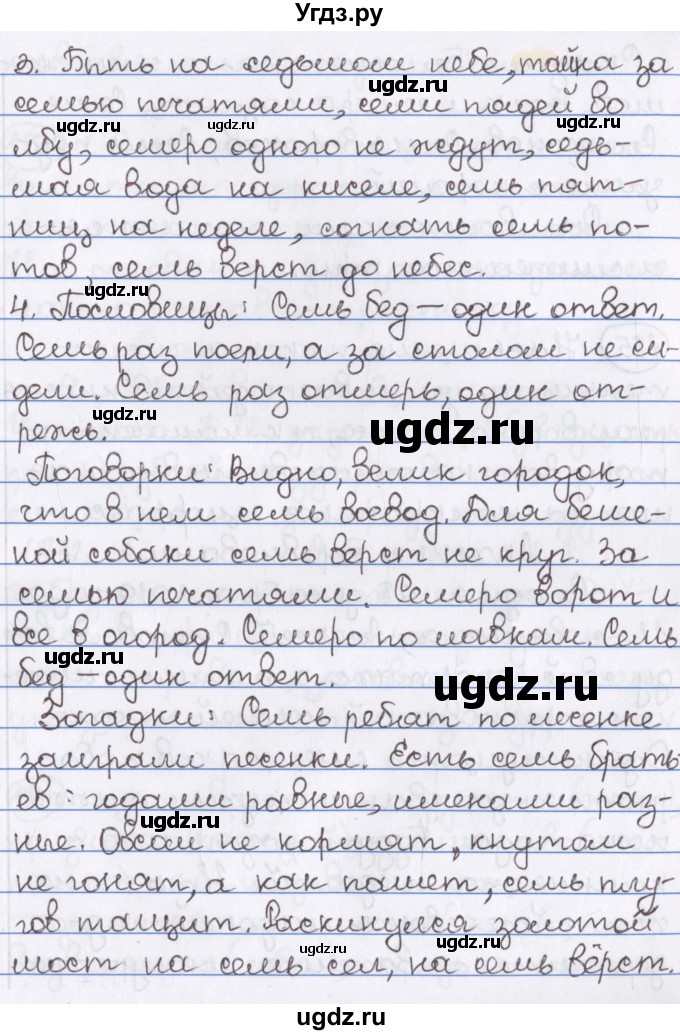 Угдз.ру
3. Быть на седьмом небе, тайна за
семью печатями, семи пядей во
лбу, семеро одного не ждут, седь-
мая вода на киселе, семь пят-
ниц на неделе, согнать семь по-
тов семь верст до небес.
4. Пословицы: Семь бед – один ответ.
Семь раз поели, а за столом не си-
дели. Семь раз отмерь, один от-
режь.
Поговорки: Видно, велик городок,
что в нем семь воевод. Для беше-
ной собаки семь верст не круг. За
семью печатями. Семеро ворот и
все в огород. Семеро по лавкам. Семь
бед – один ответ.
Загадки: Семь ребят по лесенке
заиграли песенки. Есть семь брать-
ев: годами равные, именами раз-
ные. Овсом не кормят, кнутом
не гонят, а как пашет, семь плу-
гов тащит. Раскинулся золотой
мост на семь сел, на семь вёрст.
ugdz.ru